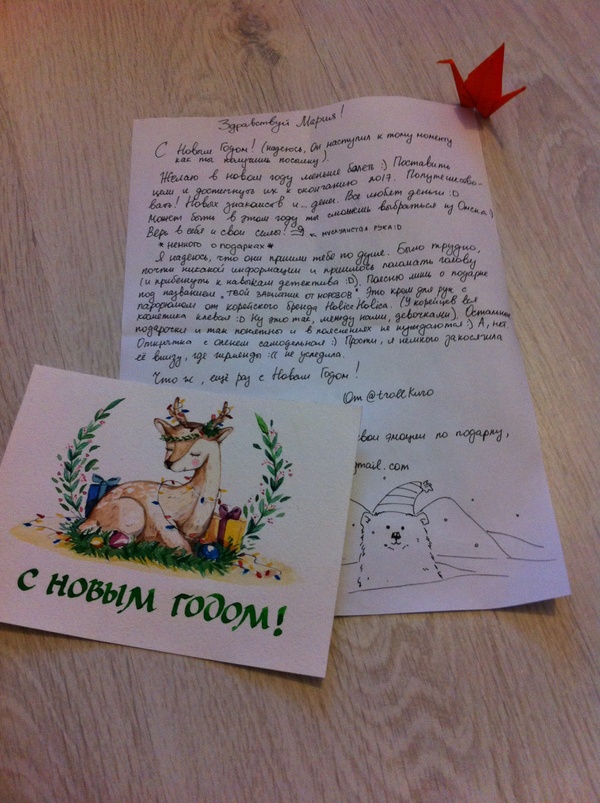 Здравствуй Мария!
С Новым Годом! (надеюсь, Он наступил к тому моменту
как ты получишь посылку)
Желаю в новом году меньше болеть :) Поставить
цели и достигнуть их к окончанию 2017. Попутешество-
вать! Новых знакомств и... денег. Все любят деньги :D
Может быть в этом году ты сможешь выбраться из Омска :)
Верь в себя и свои силы! ← мускулистая рука :D
*немного о подарках*
Я надеюсь, что они пришли тебе по душе. Было трудно,
почти никакой информации и пришлось поломать голову
(и прибегнуть к навыкам детектива :D). Поясню лишь о подарке
под названием "Твой защитник от морозов" Это крем для рук с
пафосом от корейского бренда Holica Holica. (У корейцев вся
косметика клевая :D Ну это так, между нами, девочками). Остальные
подарочки и так понятны и в пояснениях не нуждаются :) А, нет
Открытка с оленем самодельная :) Прости, я немного закосячила
её внизу, где гирлянды :(( не уследила.
Что ж, ещё раз с Новым Годом!
От @trollKuro
свои эмоции по подарку,
gmail.com
С НОВЫМ ГОДОМ!